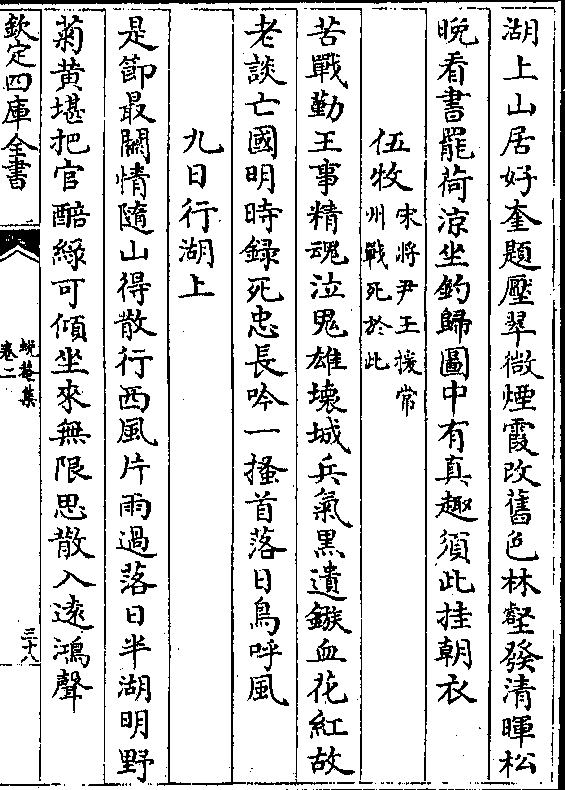 湖上山居好奎題壓翠微煙霞改舊色林壑發清暉松
晚看書罷荷涼坐釣歸圖中有真趣須此挂朝衣
伍牧宋將尹玉援常
州戰死於此
苦戰勤王事精魂泣鬼雄壞城兵氣黑遺鏃血花紅故
老談亡國明時録死忠長吟一搔首落日鳥呼風
九日行湖上
是節最關情隨山得散行西風片雨過落日半湖明野
菊黄堪把官醅緑可傾坐來無限思散入遠鴻聲
欽定四庫全書
蛻菴集
卷二
三十八